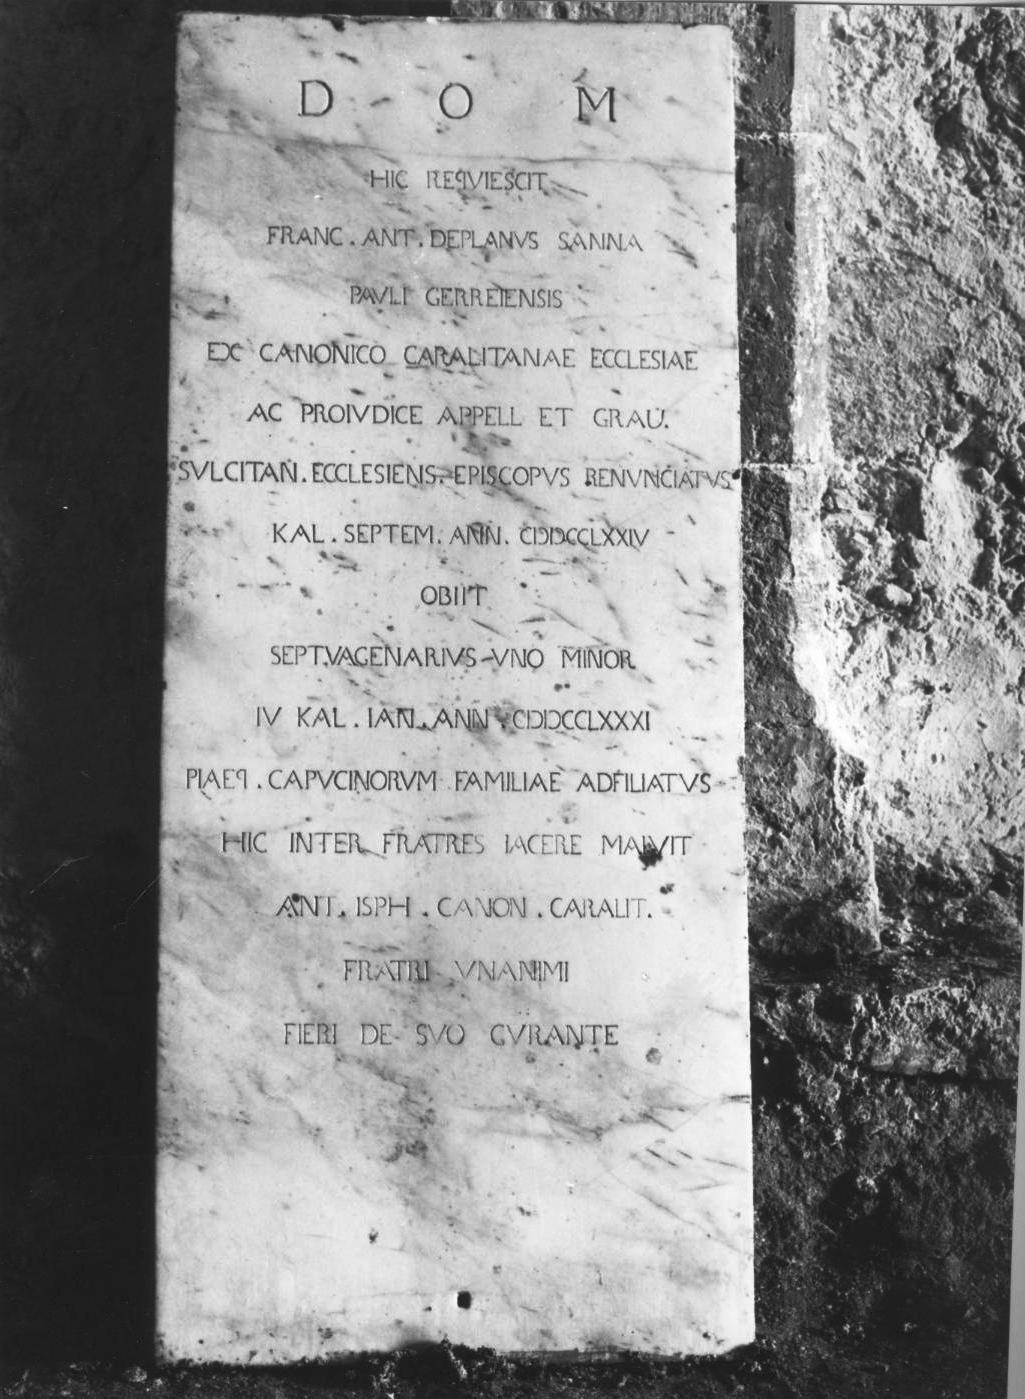 D O M
HIC REQVIESCIT
FRANC . ANT . DEPLANVS SANNA
PAVLI GERREIENSIS
EX CANONICO CARALITANAE ECCLESIAE
AC PROIVDICE APPELL ET GRAU.
SVLCITAN . ECCLESIENS . EPISCOPVS RENVNCIATVS
KAL . SEPTEM . ANN . CIƆIƆCCLXXIV
OBIIT
SEPTVAGENARIVS VNO MINOR
IV KAL . IAN . ANN . CIƆIƆCCLXXXI
PIAEQ . CAPVCINORVM FAMILIAE ADFILIATVS
HIC INTER FRATRES IACERE MALVIT
ANT . ISPH . CANON . CARALIT.
FRATRI VNANIMI
FIERI DE SVO CVRANTE